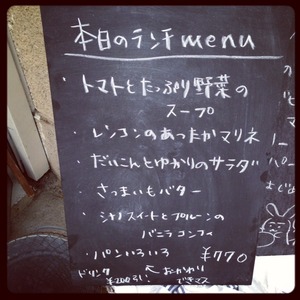 本日のランチmenu
・トマトとたっぷり野菜の
スープ
・レンコンのあったかマリネ
・だいこんとゆかりのサラダ
・さつまいもバター
・シナノスイートとプルーンの
バニラコンフィ
・パンいろいろ ¥770
ドリンク
¥200引い
おかわり
できマス